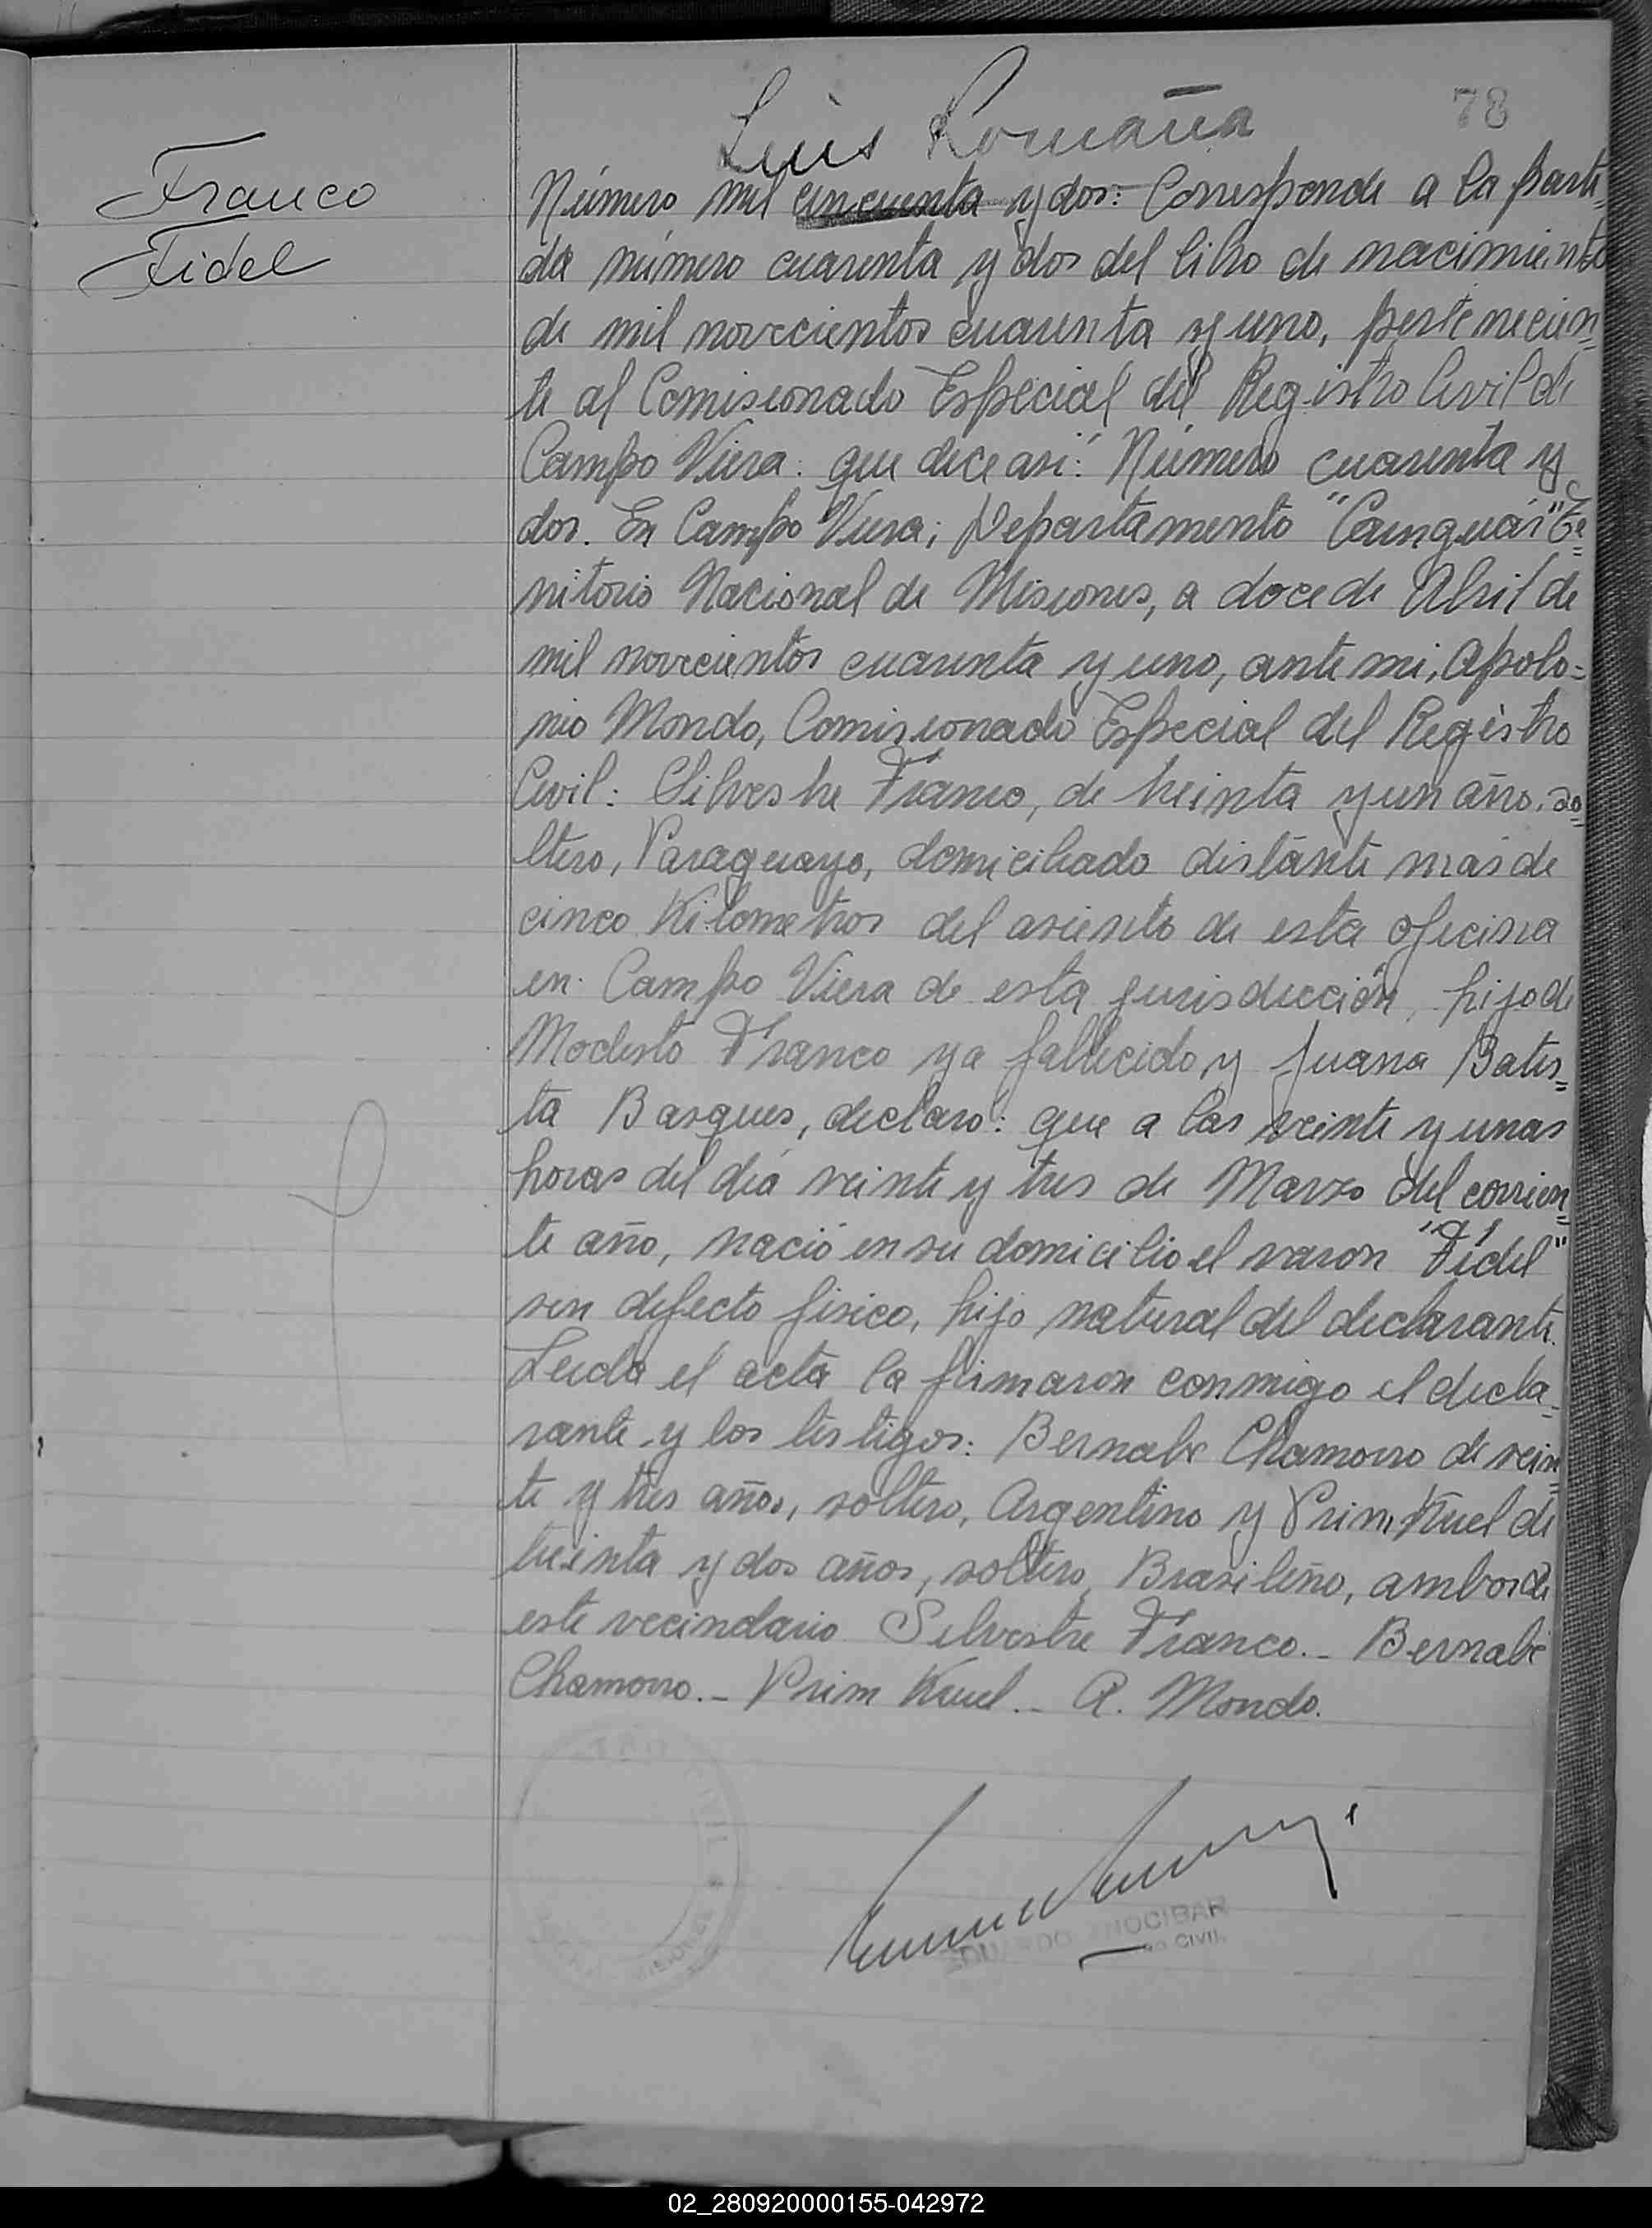 78
Luis Romaña
Franco
Fidel
Número mil cincuenta y dos: Corresponde a la parti=
da número cuarenta y dos del libro de nacimiento
de mil novecientos cuarenta y uno, pertenecien=
te al Comisionado Especial del Registro Civil de
Campo Viera: que dice asi: "Número cuarenta y
dos. En Campo Viera; Departamento "Cainguás" Te=
rritorio Nacional de Misiones, a doce de Abril de
mil novecientos cuarenta y uno, ante mi, Apolo=
nio Mondo, Comisionado Especial del Registro
Civil: Silvestre Franco, de treinta y un año, so=
ltero, Paraguayo, domiciliado distante más de
cinco Kilometros del asiento de esta oficina
en Campo Viera de esta jurisdicción, hijo de
Modesto Franco ya fallecido y Juana Batis=
ta Basques, declaró: que a las veinte y unas
horas del día veinte y tres de Marzo del corrien=
te año, nació en su domicilio el varon "Fidel"
sin defecto fisico, hijo natural del declarante.
Leida el acta la firmaron conmigo el decla=
rante y los testigos: Bernabe Chamorro de vein=
te y tres años, soltero, Argentino y Prim Kuel de
treinta y dos años, soltero, Brasileño, ambos de
este vecindario Silvestre Franco.- Bernabé
Chamorro.- Prim Kuel.- A. Mondo.
CIVIL
02_280920000155-042972